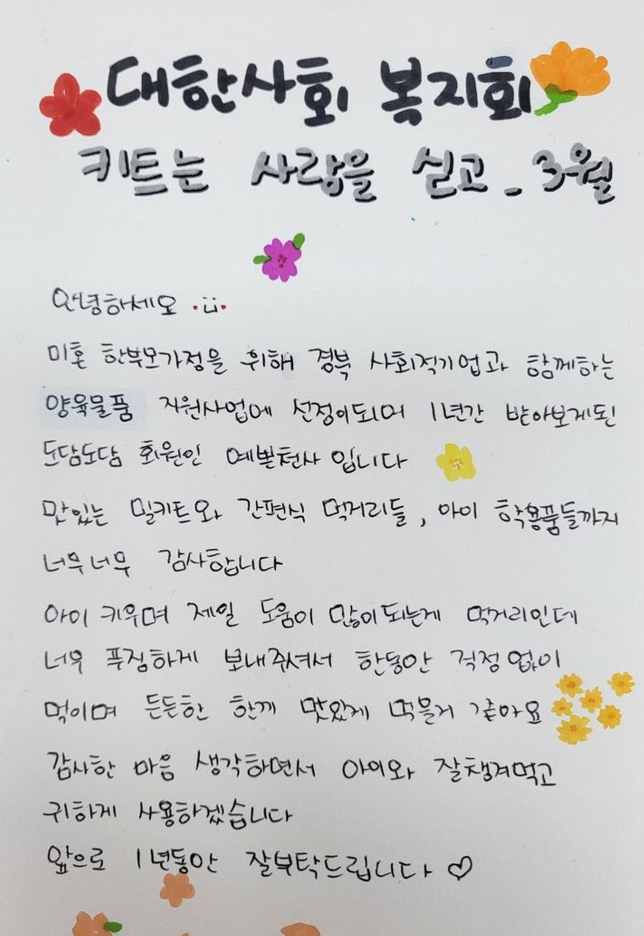 대한사회 복지회
키트는 사랑을 싣고 - 3월
안녕하세요
미혼 한부모가정을 위해 경북 사회적기업과 함께하는
양육물품 지원사업에 선정이되며 1년간 받아보게된
도담도담 회원인 예쁜천사 입니다
맛있는 밀키트와 간편식 먹거리들, 아이 학용품들까지
너무너무 감사합니다
아이 키우며 제일 도움이 많이되는게 먹거리인데
너무 푸짐하게 보내주셔서 한동안 걱정 없이
먹이며 든든한 한끼 맛있게 먹을거 같아요
감사한 마음 생각하면서 아이와 잘챙겨먹고
귀하게 사용하겠습니다
앞으로 1년동안 잘부탁드립니다 ♡